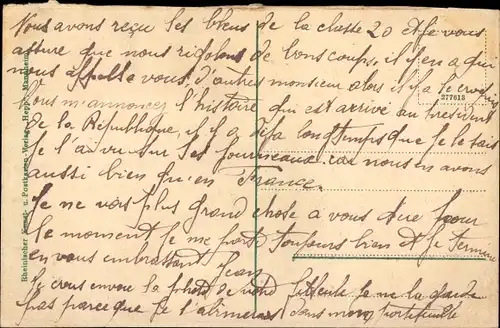 Nous avons reçu les bleus de la classe 20 et je vous
assure que nous rigolons de bons coups, il y en a qui
nous appelle vous d'autres monsieur alors il y a le
377618
Vous m'annoncez l'histoire qui est arrivé au President
de la République, il y a déja longtemps que je le sais
je l'ai vu sur les journeaux car nous en avons
aussi bien qu'en France.
Je ne vois plus grand chose a vous dire pour
le moment je me porte toujours bien et je termine
en vous embrassant Jean
je vous envoi la photo de je ne la garde
pas parce que je l'abimerai dans mon portefeuille
Rheinischer Kunst- u. Postkarten-Verlag Mannheim